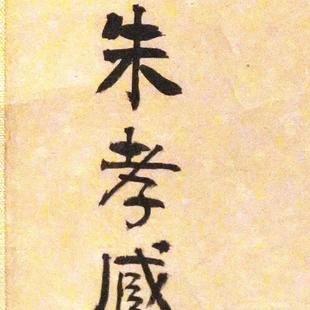 朱孝臧